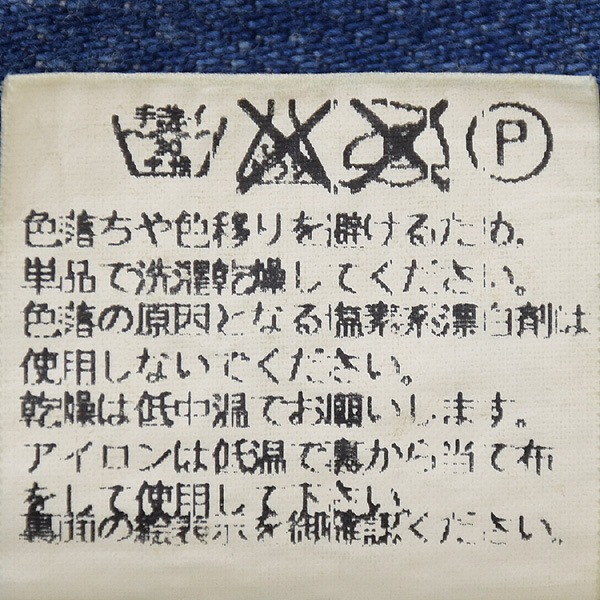 手洗イ
30
中性
P
色落ちや色移りを避けるため、
単品で洗濯乾燥してください。
色落の原因となる塩素系漂白剤は
使用しないでください。
乾燥は低中温でお願いします。
アイロンは低温で裏から当て布
をして使用して下さい。
裏面の絵表示を御確認ください。